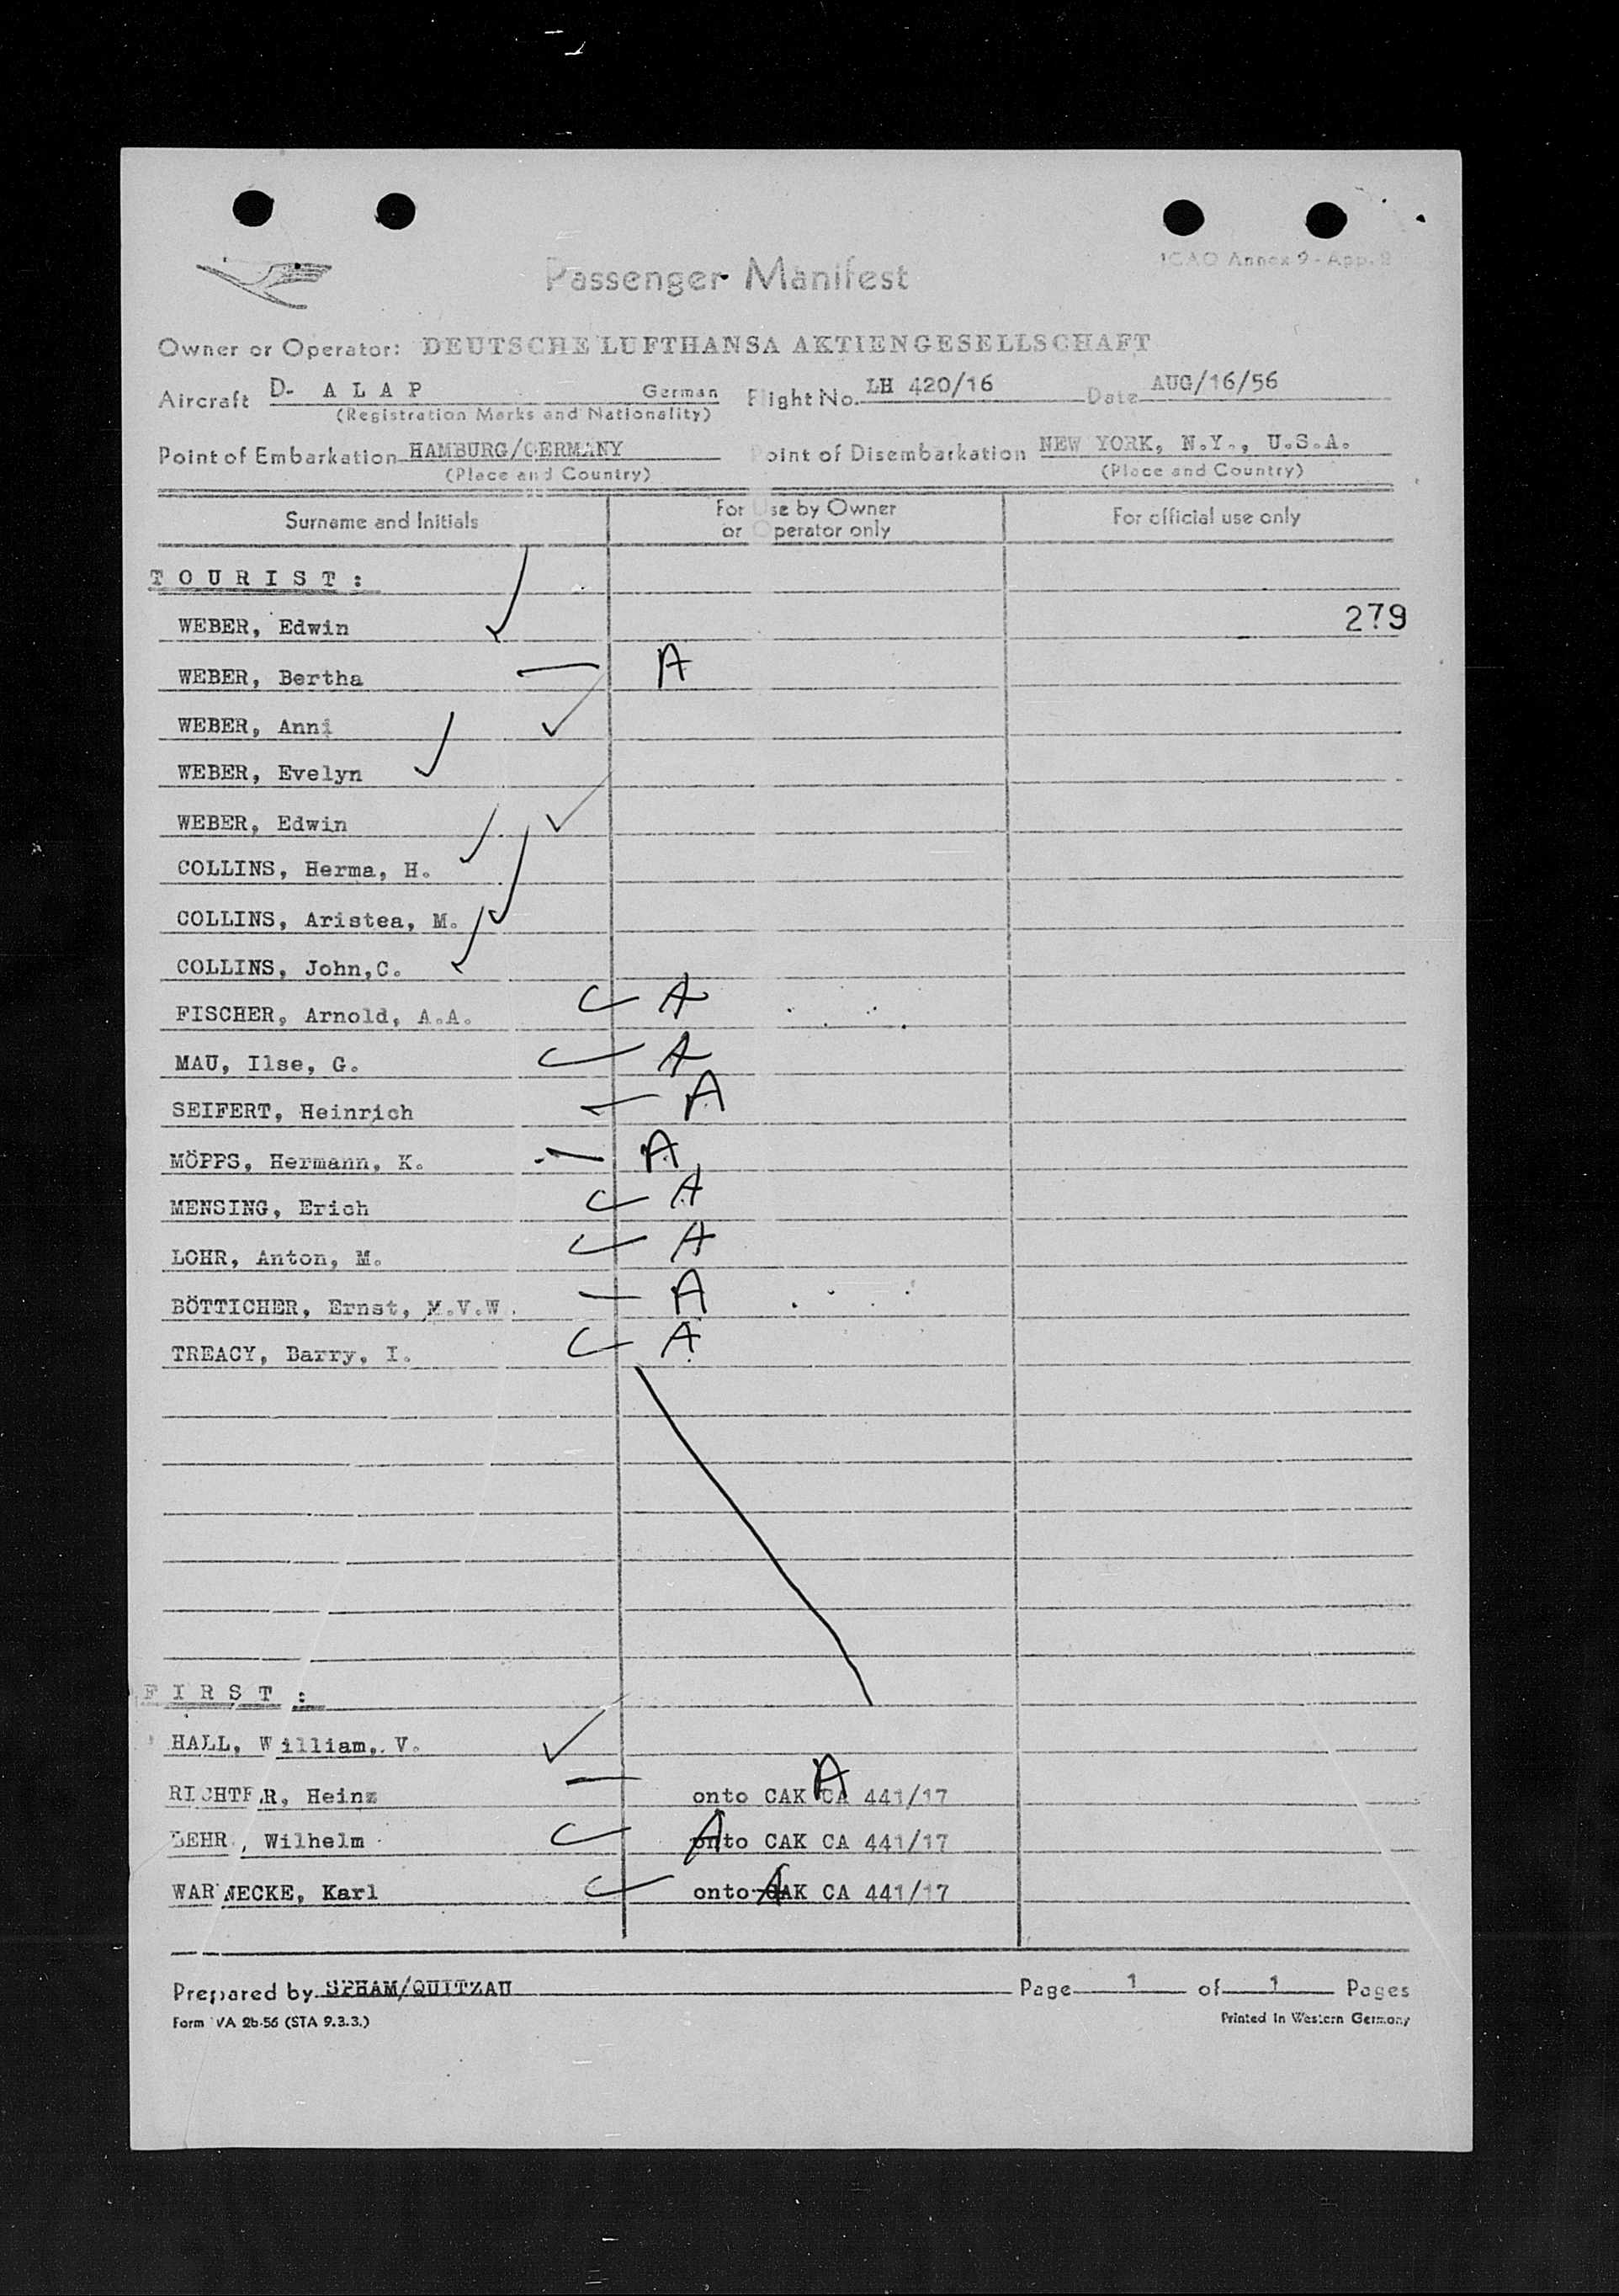 Passenger Manifest
ICAO Annex 9 - App.
Owner or Operator: DEUTSCHE LUFTHANSA AKTIENGESELLSCHAFT
Aircraft D- A L A P German Flight No. LH 420/16 Date AUG/16/56
(Registration Marks and Nationality)
Point of Embarkation HAMBURG/GERMANY Point of Disembarkation NEW YORK, N.Y., U.S.A.
(Place and Country) (Place and Country)
Surname and Initials For Use by Owner or Operator only For official use only
T O U R I S T :
WEBER, Edwin 279
WEBER, Bertha A
WEBER, Anni
WEBER, Evelyn
WEBER, Edwin
COLLINS, Herma, H.
COLLINS, Aristea, M.
COLLINS, John,C.
FISCHER, Arnold, A.A. A
MAU, Ilse, G. A
SEIFERT, Heinrich A
MÖPPS, Hermann, K. A
MENSING, Erich A
LOHR, Anton, M. A
BÖTTICHER, Ernst, M.V.W. A
TREACY, Barry, I. A
F I R S T :
HALL, William, V.
RICHTER, Heinz onto CAK CA 441/17 A
LEHR, Wilhelm onto CAK CA 441/17 A
WARNECKE, Karl onto CAK CA 441/17 A
Prepared by SPHAM/QUITZAU Page 1 of 1 Pages
Form VA 2b-56 (STA 9.3.3.) Printed in Western Germany